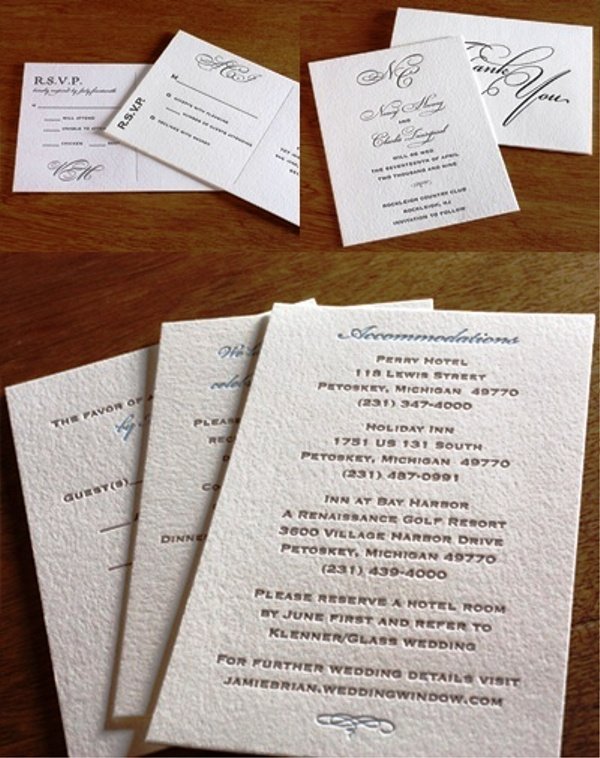 R.S.V.P.
kindly respond by july fourteenth
M
WILL ATTEND
UNABLE TO ATTEND
CHICKEN
R.S.V.P.
M
ACCEPTS WITH PLEASURE
NUMBER OF GUESTS ATTENDING
DECLINES WITH REGRET
NC
Nancy
AND
Charlie
WILL BE WED
THE SEVENTEENTH OF APRIL
TWO THOUSAND AND NINE
ROCKLEIGH COUNTRY CLUB
ROCKLEIGH, NJ
INVITATION TO FOLLOW
Thank
You
THE FAVOR OF
by
GUEST(S)
We
PLEASE
REC
CO
DINNE
Accommodations
PERRY HOTEL
118 LEWIS STREET
PETOSKEY, MICHIGAN 49770
(231) 347-4000
HOLIDAY INN
1751 US 131 SOUTH
PETOSKEY, MICHIGAN 49770
(231) 487-0991
INN AT BAY HARBOR
A RENAISSANCE GOLF RESORT
3600 VILLAGE HARBOR DRIVE
PETOSKEY, MICHIGAN 49770
(231) 439-4000
PLEASE RESERVE A HOTEL ROOM
BY JUNE FIRST AND REFER TO
KLENNER/GLASS WEDDING
FOR FURTHER WEDDING DETAILS VISIT
JAMIEBRIAN.WEDDINGWINDOW.COM